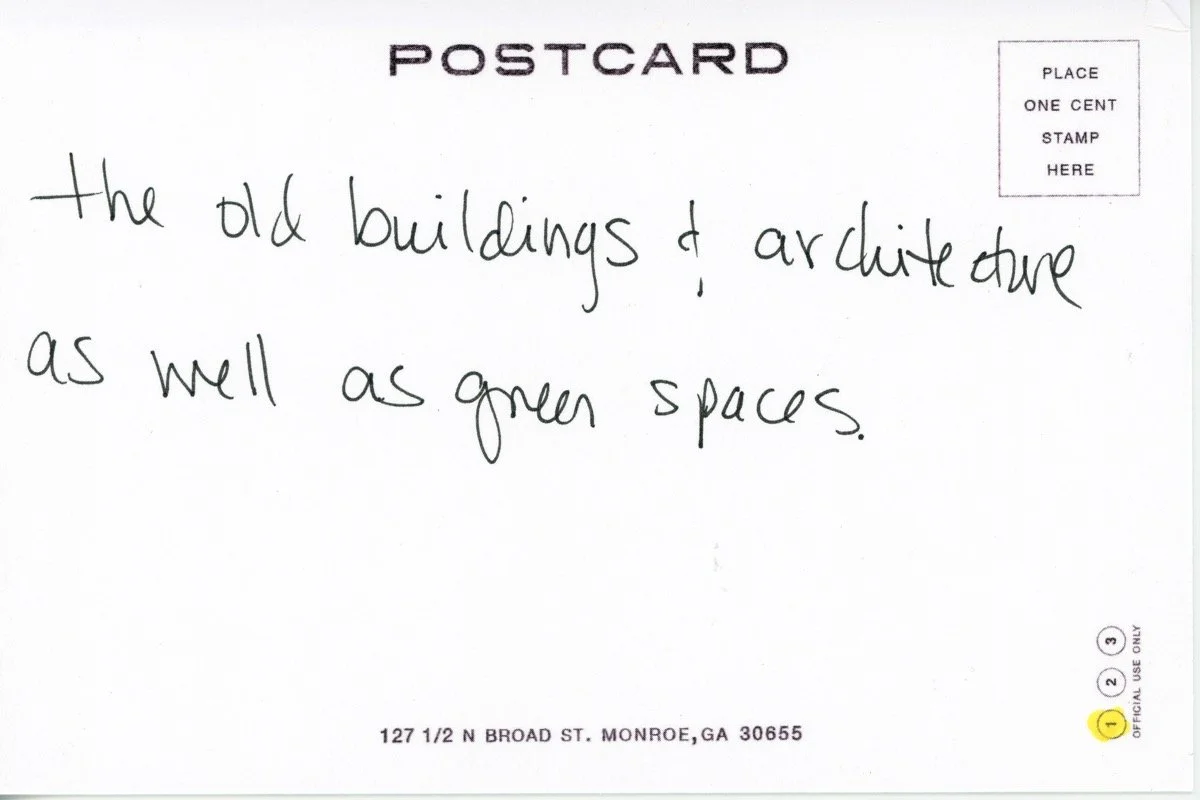 POSTCARD
PLACE
ONE CENT
STAMP
HERE
the old buildings & architecture
as well as green spaces.
1 2 3
OFFICIAL USE ONLY
127 1/2 N BROAD ST. MONROE,GA 30655